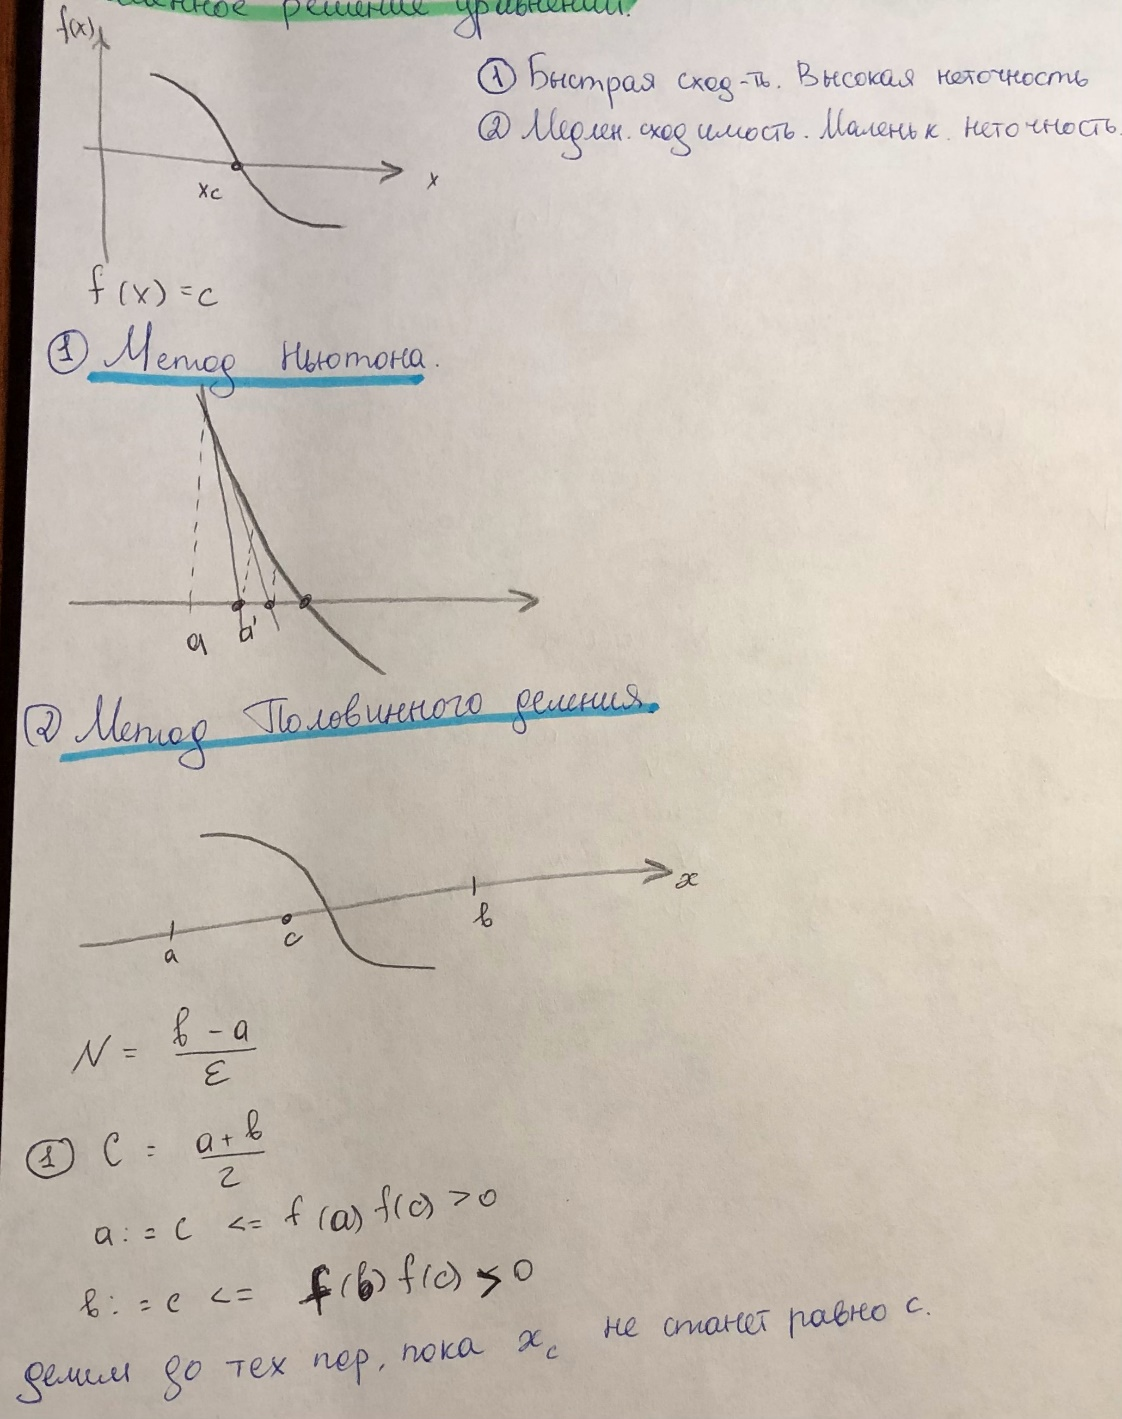 решение уравнений.
f(x)
① Быстрая сход-ть. Высокая неточность
② Медлен. сходимость. Маленьк. неточность.
xc
x
f(x) = c
① Метод Ньютона.
a
a'
② Метод Половинного деления.
x
a
c
b
N = b - a / ε
① C = a + b / 2
a: = c <= f(a) f(c) > 0
b: = c <= f(b) f(c) > 0
делим до тех пор, пока xc не станет равно c.